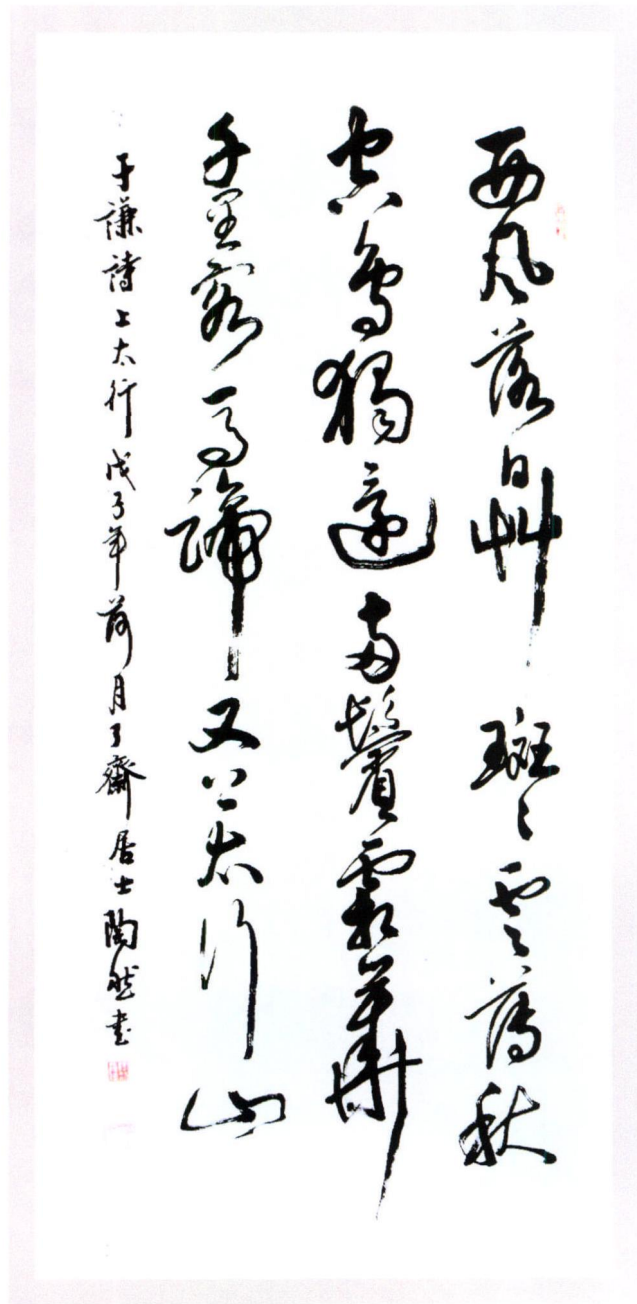 西風落日艸斑〻雲薄秋
空鳥獨還兩鬢霜華
千里客馬蹄又上太行山
于謙詩上太行戊子年荷月了齋居士陶然書